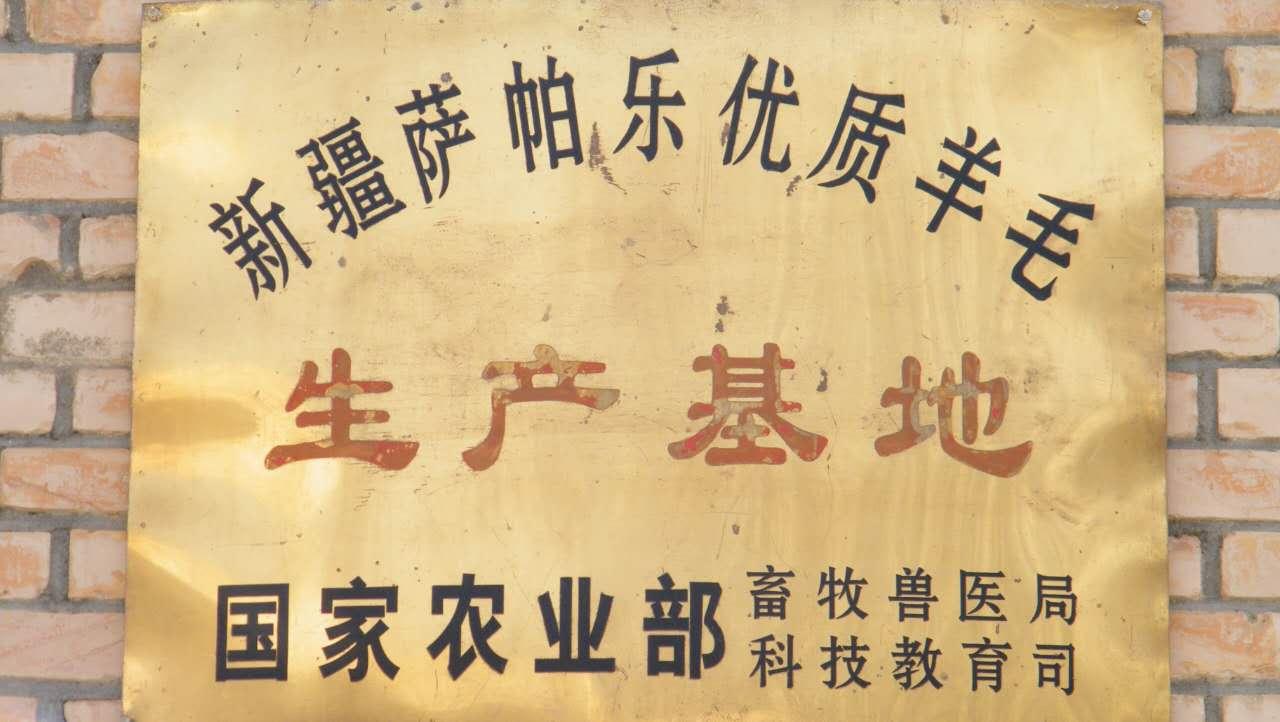 新疆萨帕乐优质羊毛
生产基地
国家农业部
畜牧兽医局
科技教育司